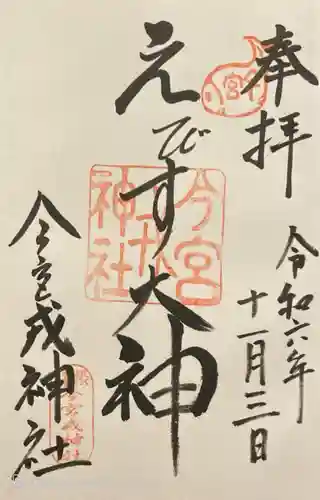 奉拝
令和六年
十一月三日
えびす大神
今宮戎神社
今宮
神社